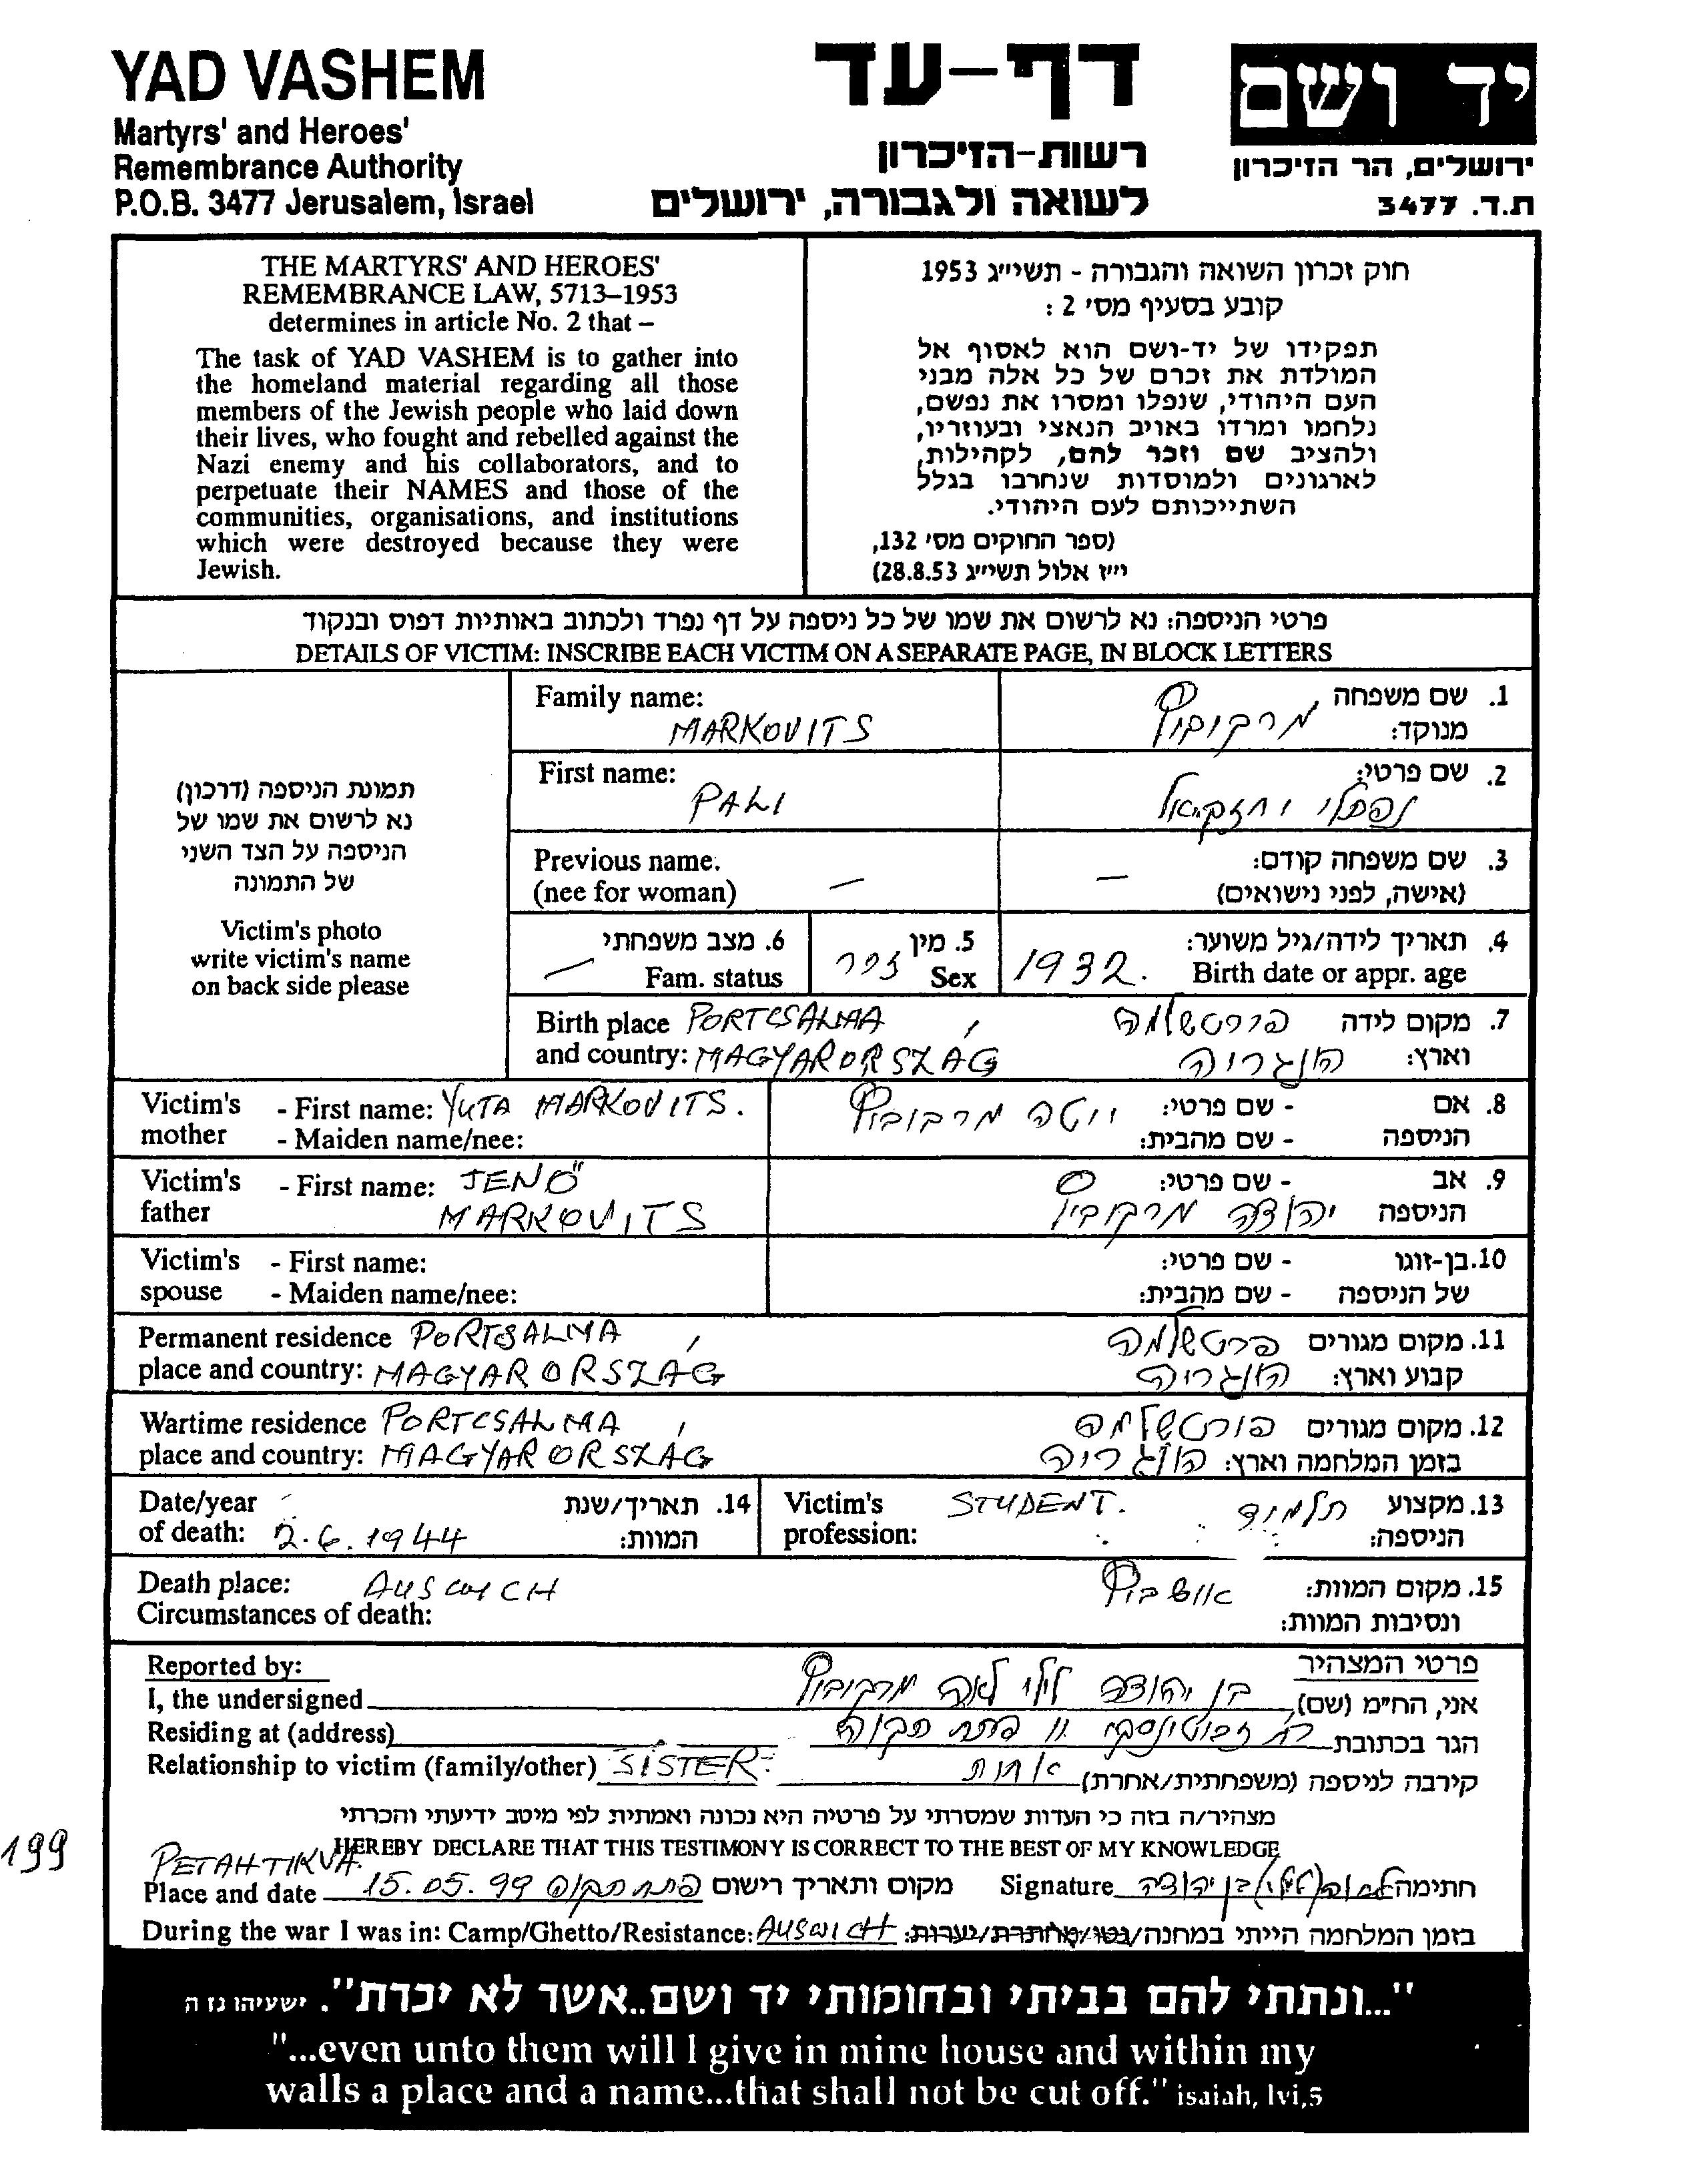 YAD VASHEM
Martyrs' and Heroes'
Remembrance Authority
P.O.B. 3477 Jerusalem, Israel
דף-עד
רשות-הזיכרון
לשואה ולגבורה, ירושלים
יד ושם
ירושלים, הר הזיכרון
ת.ד. 3477
THE MARTYRS' AND HEROES'
REMEMBRANCE LAW, 5713–1953
determines in article No. 2 that –
The task of YAD VASHEM is to gather into
the homeland material regarding all those
members of the Jewish people who laid down
their lives, who fought and rebelled against the
Nazi enemy and his collaborators, and to
perpetuate their NAMES and those of the
communities, organisations, and institutions
which were destroyed because they were
Jewish.
חוק זכרון השואה והגבורה - תשי"ג 1953
קובע בסעיף מס' 2 :
תפקידו של יד-ושם הוא לאסוף אל
המולדת את זכרם של כל אלה מבני
העם היהודי, שנפלו ומסרו את נפשם,
נלחמו ומרדו באויב הנאצי ובעוזריו,
ולהציב שם וזכר להם, לקהילות,
לארגונים ולמוסדות שנחרבו בגלל
השתייכותם לעם היהודי.
(ספר החוקים מס' 132,
י"ז אלול תשי"ג 28.8.53)
פרטי הניספה: נא לרשום את שמו של כל ניספה על דף נפרד ולכתוב באותיות דפוס ובנקוד
DETAILS OF VICTIM: INSCRIBE EACH VICTIM ON A SEPARATE PAGE, IN BLOCK LETTERS
תמונת הניספה (דרכון)
נא לרשום את שמו של
הניספה על הצד השני
של התמונה
Victim's photo
write victim's name
on back side please
Family name:
MARKOVITS
1. שם משפחה
מנוקד: מרקוביץ
First name:
PALI
2. שם פרטי:
נפתלי יחזקיאל
Previous name.
(nee for woman) –
3. שם משפחה קודם: –
(אישה, לפני נישואים)
6. מצב משפחתי
Fam. status –
5. מין
Sex זכר
4. תאריך לידה/גיל משוער:
Birth date or appr. age 1932.
Birth place PORTCSALMA ,
and country: MAGYARORSZÁG
7. מקום לידה פורטשלמה
וארץ: הונגריה
Victim's - First name: YUTA MARKOVITS.
mother - Maiden name/nee:
8. אם - שם פרטי: יוטה מרקוביץ
הניספה - שם מהבית:
Victim's - First name: JENŐ
father MARKOVITS
9. אב - שם פרטי:
הניספה יהודה מרקוביץ
Victim's - First name:
spouse - Maiden name/nee:
10. בן-זוגו - שם פרטי:
של הניספה - שם מהבית:
Permanent residence PORTSALMA ,
place and country: MAGYARORSZAG
11. מקום מגורים פרטשלמה
קבוע וארץ: הונגריה
Wartime residence PORTCSALMA ,
place and country: MAGYARORSZAG
12. מקום מגורים פורטשלמה
בזמן המלחמה וארץ: הונגריה
Date/year
of death: 2.6.1944
14. תאריך/שנת
המוות:
Victim's STUDENT.
profession:
13. מקצוע תלמיד
הניספה:
Death place: AUSWICH
Circumstances of death:
15. מקום המוות: אושביץ
ונסיבות המוות:
Reported by:
פרטי המצהיר
I, the undersigned
אני, הח"מ (שם) בן יהודה לילי לאה מרקוביץ
Residing at (address)
הגר בכתובת ז'בוטינסקי 11 פתח תקוה
Relationship to victim (family/other) SISTER.
קירבה לניספה (משפחתית/אחרת) אחות
מצהיר/ה בזה כי העדות שמסרתי על פרטיה היא נכונה ואמתית לפי מיטב ידיעתי והכרתי
HEREBY DECLARE THAT THIS TESTIMONY IS CORRECT TO THE BEST OF MY KNOWLEDGE
199
PETAH TIKVA.
Place and date 15.05.99 פתח תקוה מקום ותאריך רישום
Signature לאה (לילי) בן יהודה חתימה
During the war I was in: Camp/Ghetto/Resistance: AUSWICH
בזמן המלחמה הייתי במחנה/גטו/יער/מחתרת/יערות:
"...ונתתי להם בביתי ובחומותי יד ושם..אשר לא יכרת". ישעיהו נו ה
"...even unto them will I give in mine house and within my
walls a place and a name...that shall not be cut off." isaiah, lvi,5